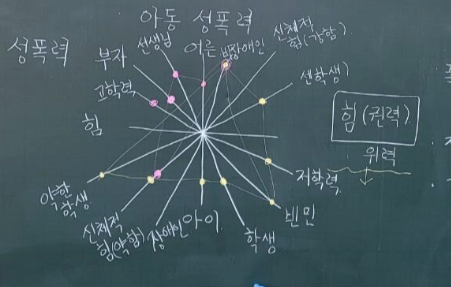 아동 성폭력
성폭력
부자
선생님
어른
비장애인
신체적
힘(강함)
고학력
센학생)
힘
힘(권력)
위력
약한
학생
신체적
힘(약함)
장애인
아이
학생
빈민
저학력